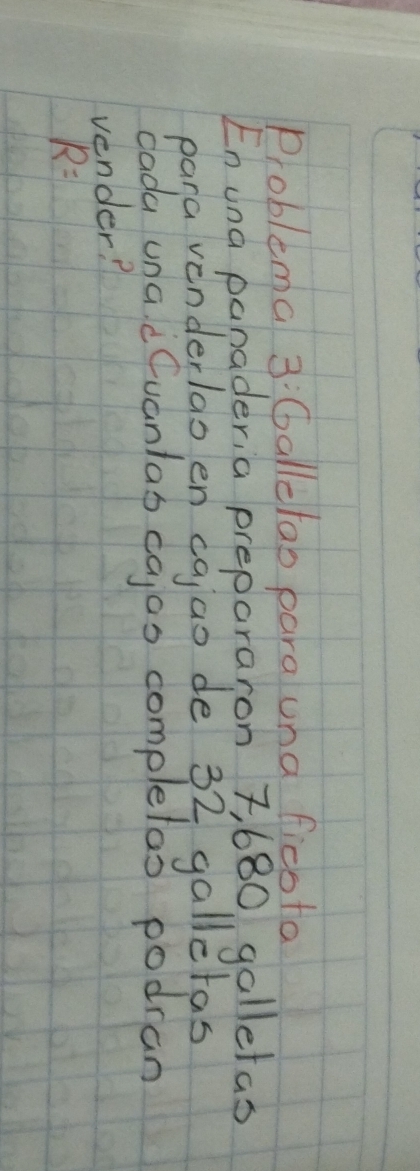 Problema 3: Galletas para una fiesta
En una panaderia prepararon 7,680 galletas
para venderlas en cajas de 32 galletas
cada una. ¿Cuantas cajas completas podran
vender?
R=